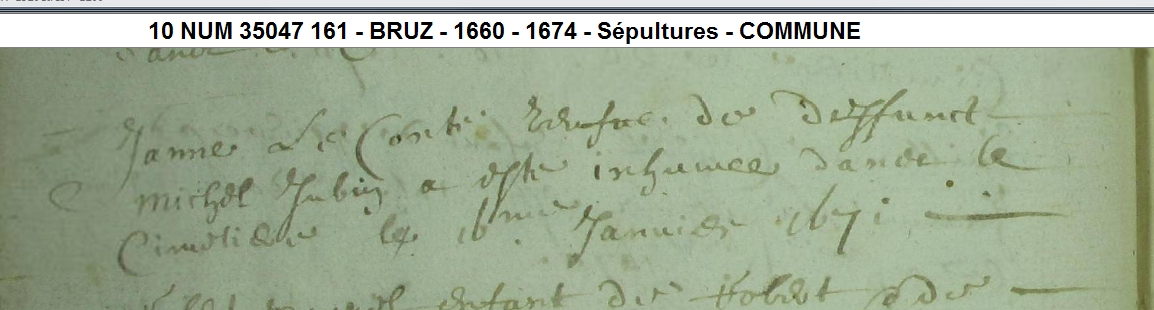 10 NUM 35047 161 - BRUZ - 1660 - 1674 - Sépultures - COMMUNE
Janne Le Conte de deffunct
michel Jubin a este inhumee dans le
Cimetiere le 16me Janvier 1671
enfant de Robert